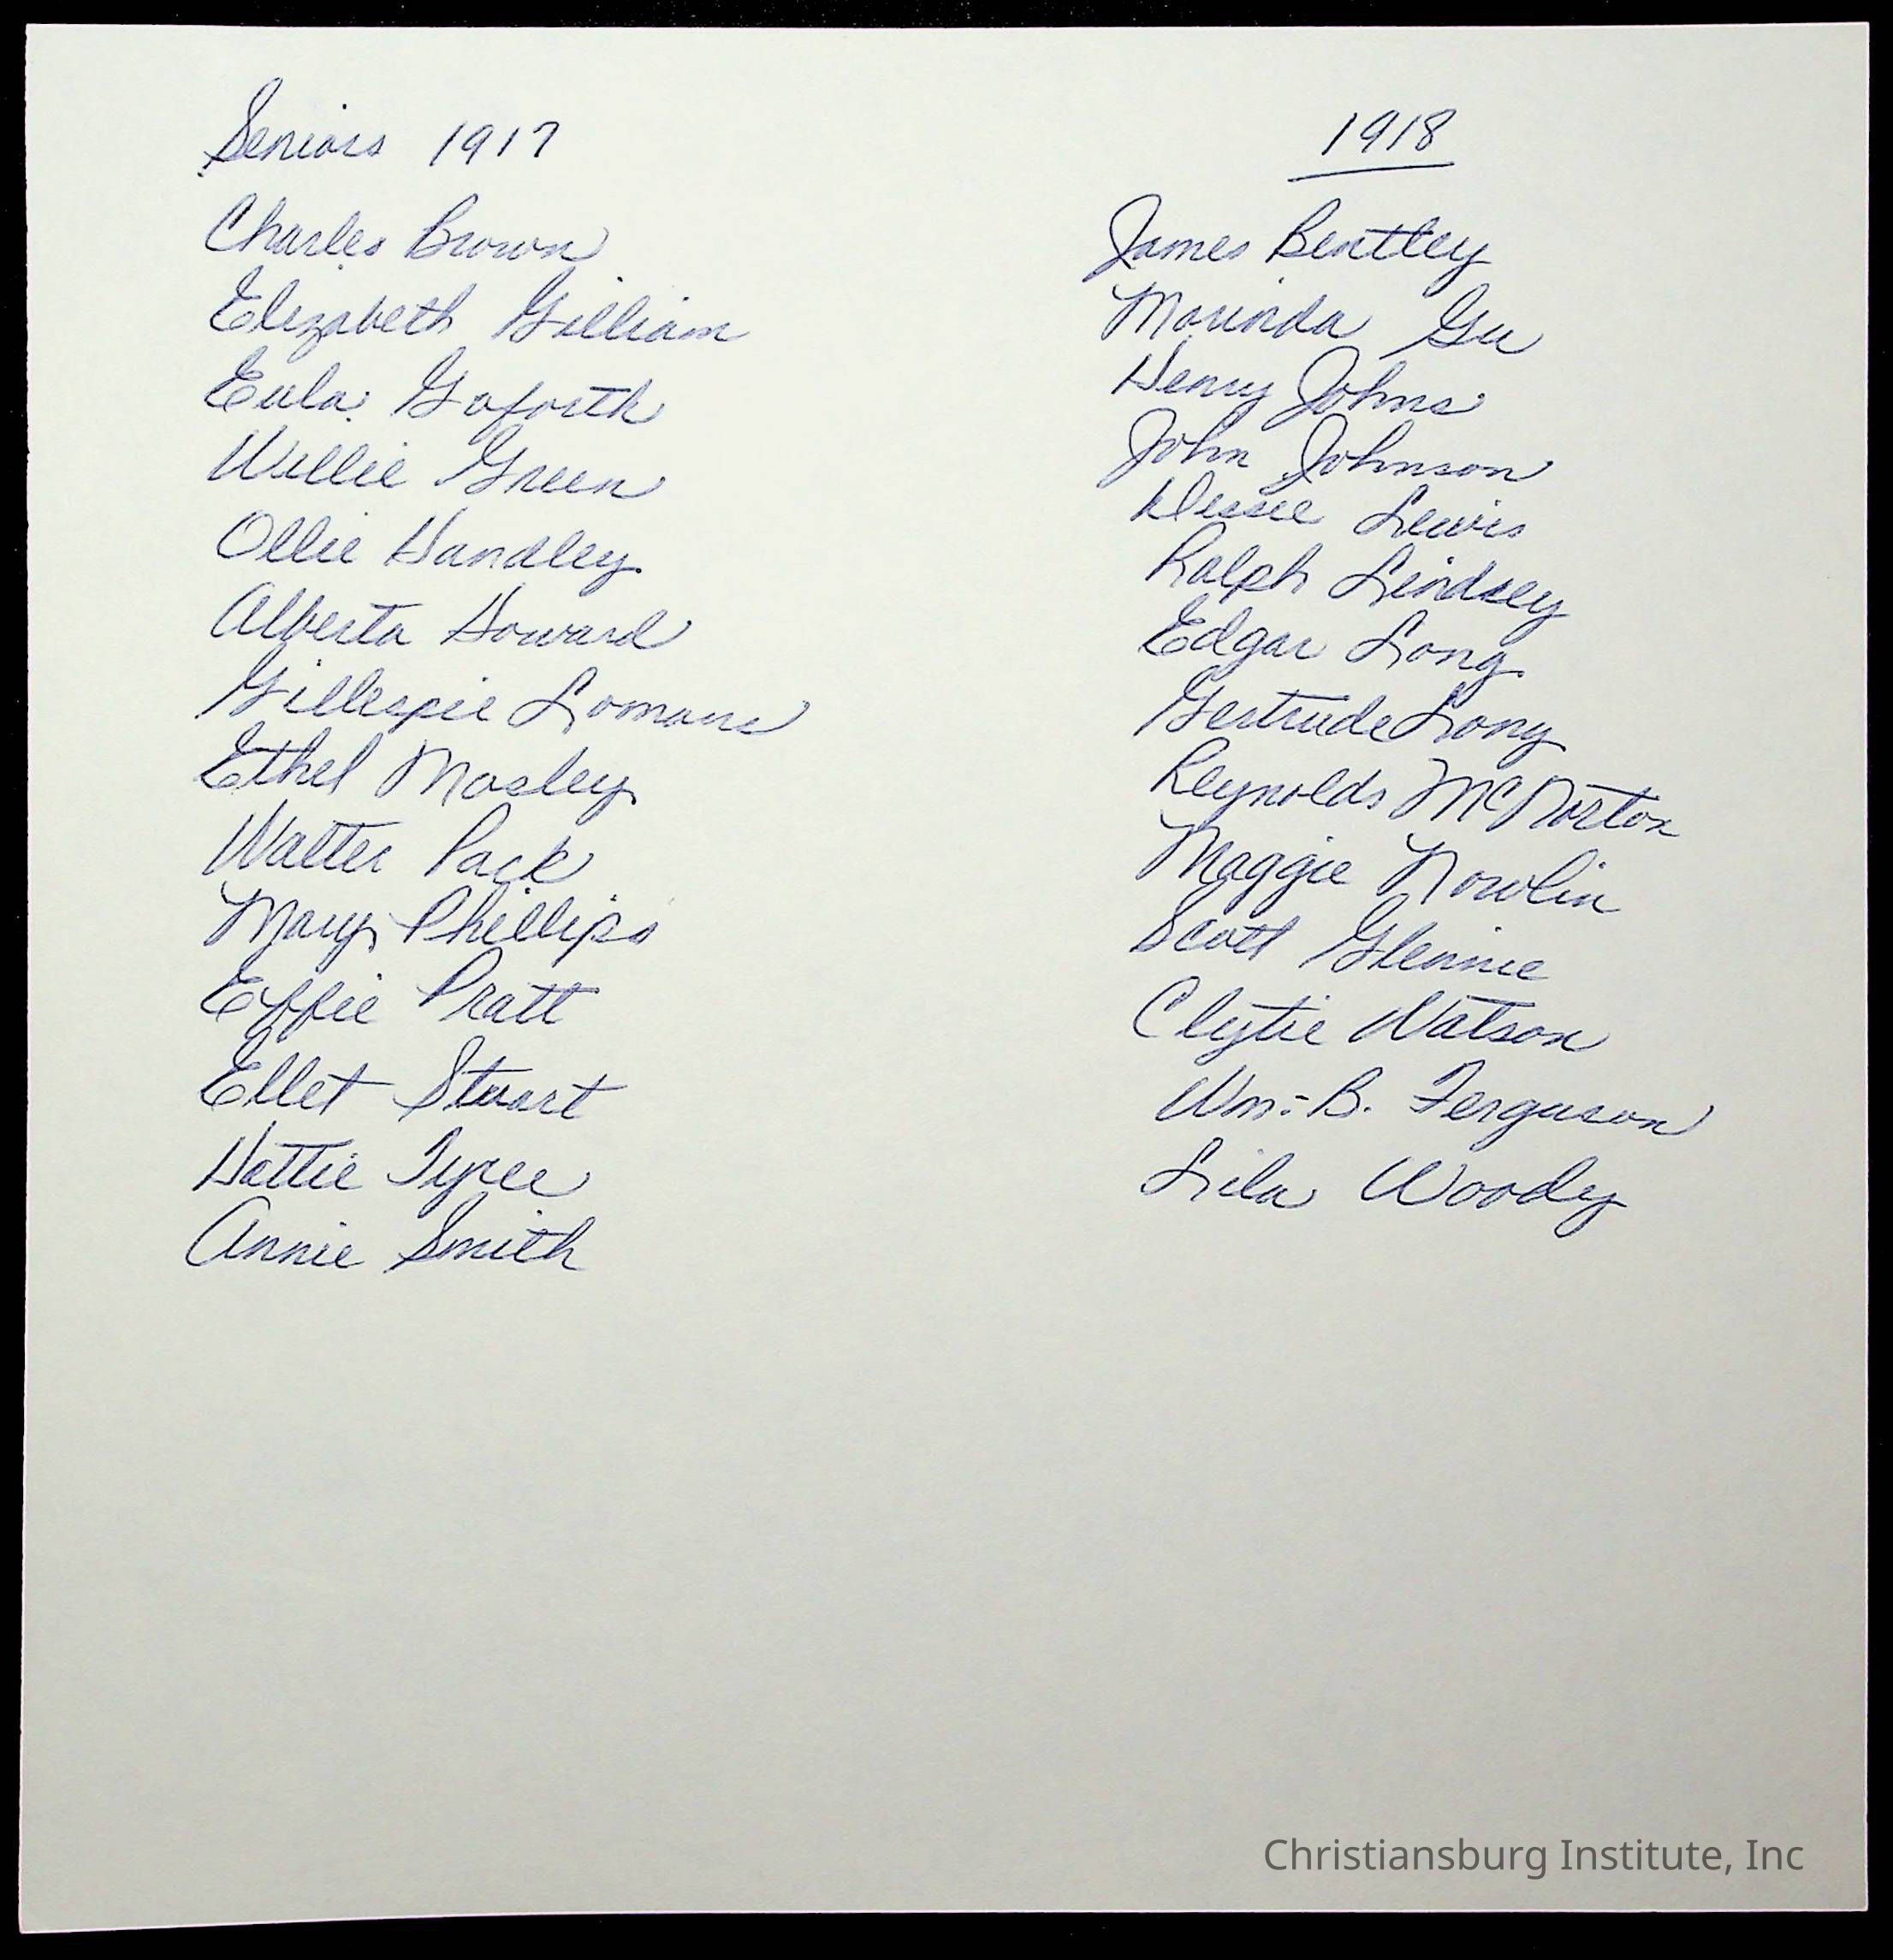 Seniors 1917
Charles Brown
Elizabeth Gilliam
Eula Goforth
Willie Green
Ollie Handley
Alberta Howard
Gillespie Lomans
Ethel Mosley
Walter Pack
Mary Phillips
Effie Pratt
Ellet Stuart
Hattie Tyree
Annie Smith
1918
James Bentley
Morinda Gu
Henry Johns
John Johnson
Lewis
Ralph Lindsey
Edgar Long
Gertrude Long
Reynolds McNorton
Maggie Nowlin
Scott Glennie
Clytie Watson
Wm. B. Ferguson
Lila Woody
Christiansburg Institute, Inc